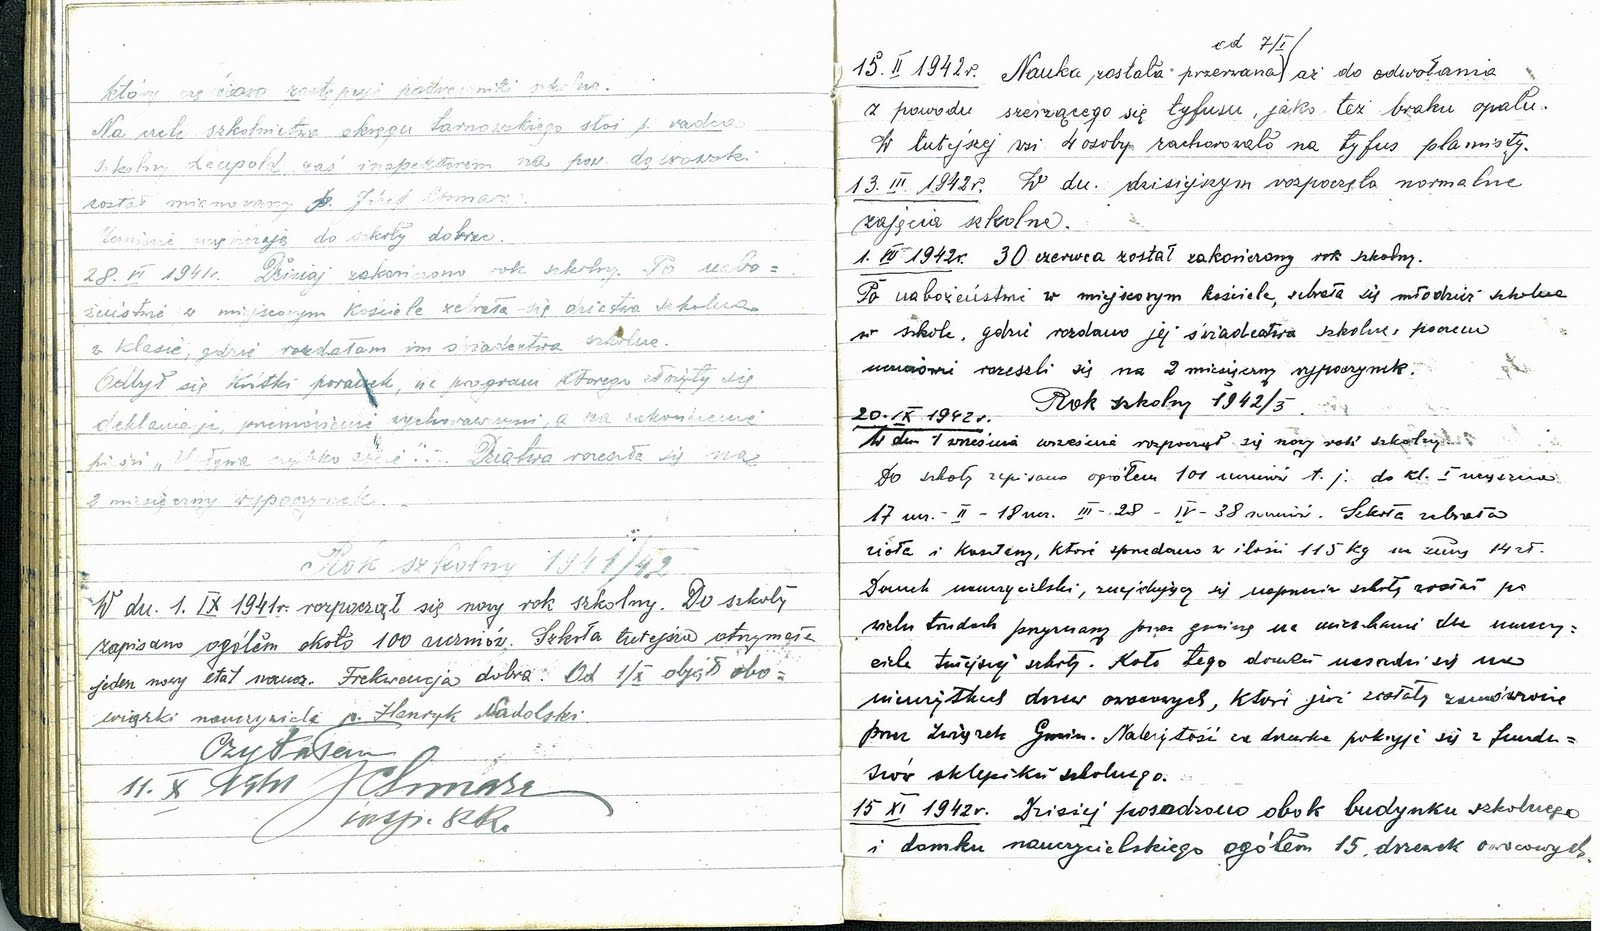 który częściowo zastępuje podręczniki szkolne.
Na czele szkolnictwa okręgu tarnowskiego stoi p. radca
szkolny Leupold, zaś inspektorem na pow. dąbrowski
został mianowany p. Józef Chmara.
do szkoły dobrze.
28. VI 1941r. Dzisiaj zakończono rok szkolny. Po nabo=
żeństwie w miejscowym kościele zebrała się dziatwa szkolna
w klasie, gdzie rozdałam im świadectwa szkolne.
Odbył się krótki poranek, na program którego złożyły się
deklamacje, przemówienie wychowawczyni, a na zakończenie
pieśń „ ". Dziatwa rozeszła się na
2 miesięczny wypoczynek.
Rok szkolny 1941/42
W dn. 1. IX 1941r. rozpoczął się nowy rok szkolny. Do szkoły
zapisano ogółem około 100 uczniów. Szkoła tutejsza otrzymała
jeden nowy etat naucz. Frekwencja dobra. Od 1/X objął obo=
wiązki nauczyciela p. Henryk Nadolski.
Czytałem
11. X 1941 JChmara
insp. szk.
od 7/I
15. II 1942r. Nauka została przerwana aż do odwołania
z powodu szerzącego się tyfusu, jako też braku opału.
W tutejszej wsi 4 osoby zachorowało na tyfus plamisty.
13. III 1942r. W dn. dzisiejszym rozpoczęto normalne
zajęcia szkolne.
1. VII 1942r. 30 czerwca został zakończony rok szkolny.
Po nabożeństwie w miejscowym kościele, zebrała się młodzież szkolna
w szkole, gdzie rozdano jej świadectwa szkolne, poczem
uczniowie rozeszli się na 2 miesięczny wypoczynek.
Rok szkolny 1942/3.
20. IX 1942r.
W dn 1 września września rozpoczął się nowy rok szkolny
Do szkoły zapisano ogółem 101 uczniów t. j. do kl. I uczęszcza
17 ucz. - II - 18 ucz. III - 28 - IV - 38 uczniów. Szkoła zebrała
zioła i kasztany, które sprzedano w ilości 115 kg za sumę 14 zł.
Domek nauczycielski, znajdujący się naprzeciw szkoły został po
wielu trudach przyznany przez gminę na mieszkanie dla nauczy=
ciela tutejszej szkoły. Koło tego domku zasadzi się
drzew owocowych, które już zostały zamówione
przez Związek Gmin. Należytość za drzewka pokryje się z fundu=
szów sklepiku szkolnego.
15 XI 1942r. Dzisiaj posadzono obok budynku szkolnego
i domku nauczycielskiego ogółem 15 drzewek owocowych.